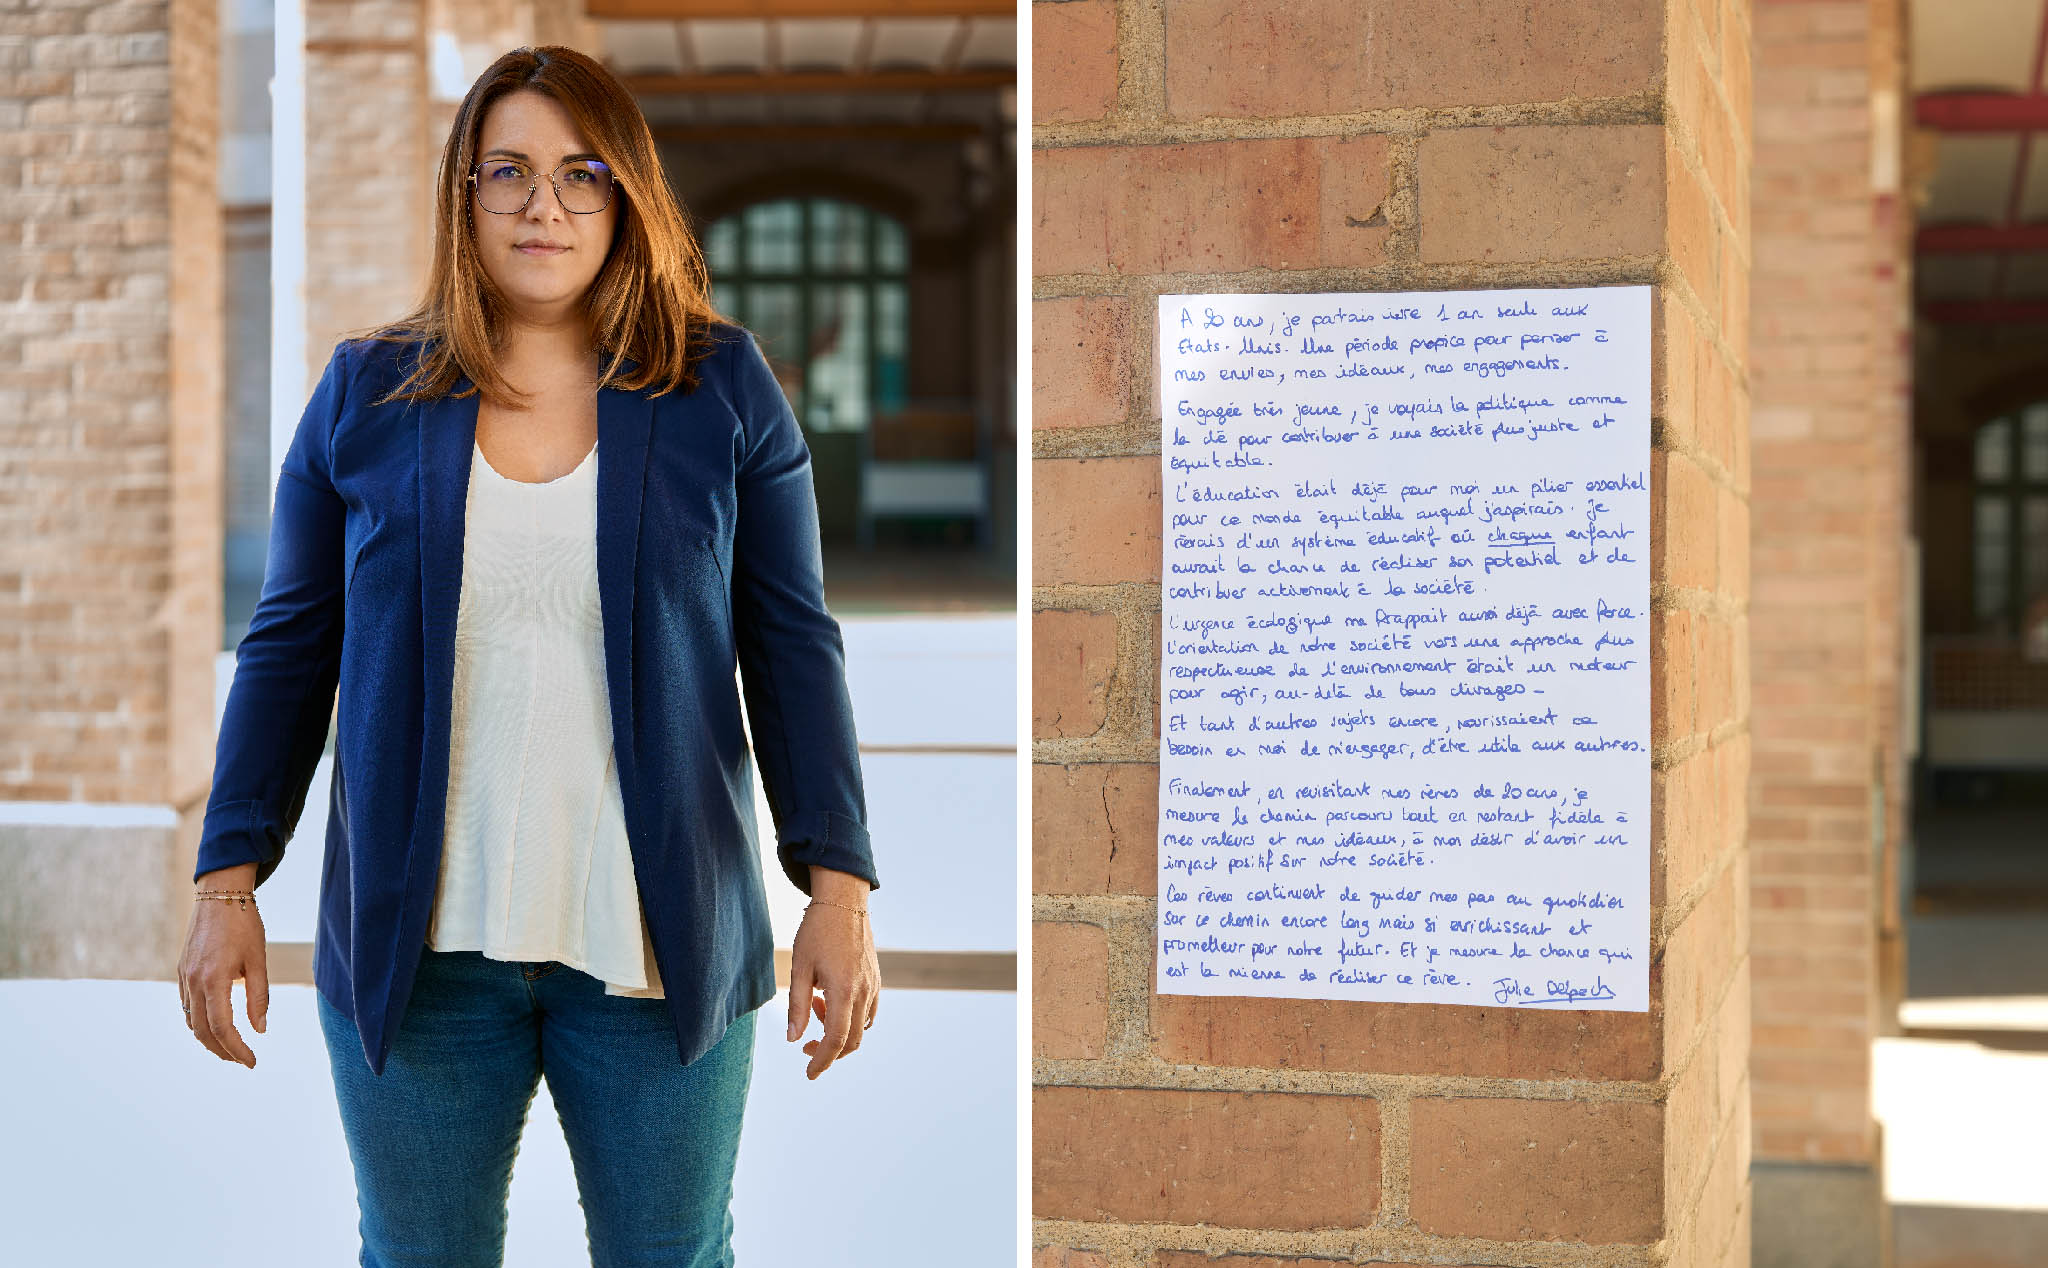 A 20 ans, je partais vivre 1 an seule aux
Etats-Unis. Une période propice pour penser à
mes envies, mes idéaux, mes engagements.
Engagée très jeune, je voyais la politique comme
la clé pour contribuer à une société plus juste et
équitable.
L'éducation était déjà pour moi un pilier essentiel
pour ce monde équitable auquel j'aspirais. Je
rêvais d'un système éducatif où chaque enfant
aurait la chance de réaliser son potentiel et de
contribuer activement à la société.
L'urgence écologique me frappait aussi déjà avec force.
L'orientation de notre société vers une approche plus
respectueuse de l'environnement était un moteur
pour agir, au-delà de tous clivages -
Et tant d'autres sujets encore, nourissaient ce
besoin en moi de m'engager, d'être utile aux autres.
Finalement, en revisitant mes rêves de 20 ans, je
mesure le chemin parcouru tout en restant fidèle à
mes valeurs et mes idéaux, à mon désir d'avoir un
impact positif sur notre société.
Ces rêves continuent de guider mes pas au quotidien
sur ce chemin encore long mais si enrichissant et
prometteur pour notre futur. Et je mesure la chance qui
est la mienne de réaliser ce rêve. Julie Delpech